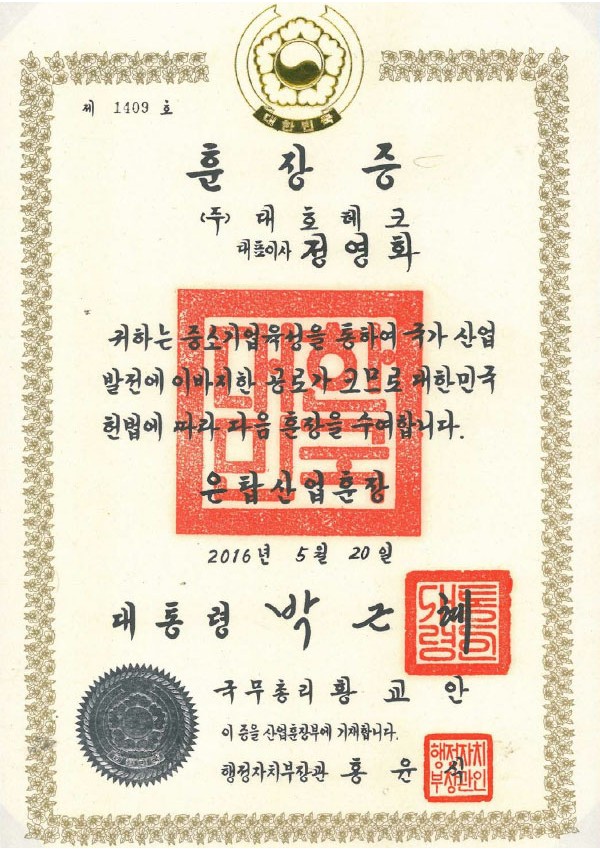 대한민국
제 1409 호
훈장증
(주) 대호테크
대표이사 정영화
귀하는 중소기업육성을 통하여 국가 산업
발전에 이바지한 공로가 크므로 대한민국
헌법에 따라 다음 훈장을 수여합니다.
은탑산업훈장
2016년 5월 20일
대통령 박근혜
국무총리 황교안
이 증을 산업훈장부에 기재합니다.
행정자치부장관 홍윤식
행정자치
부장관인